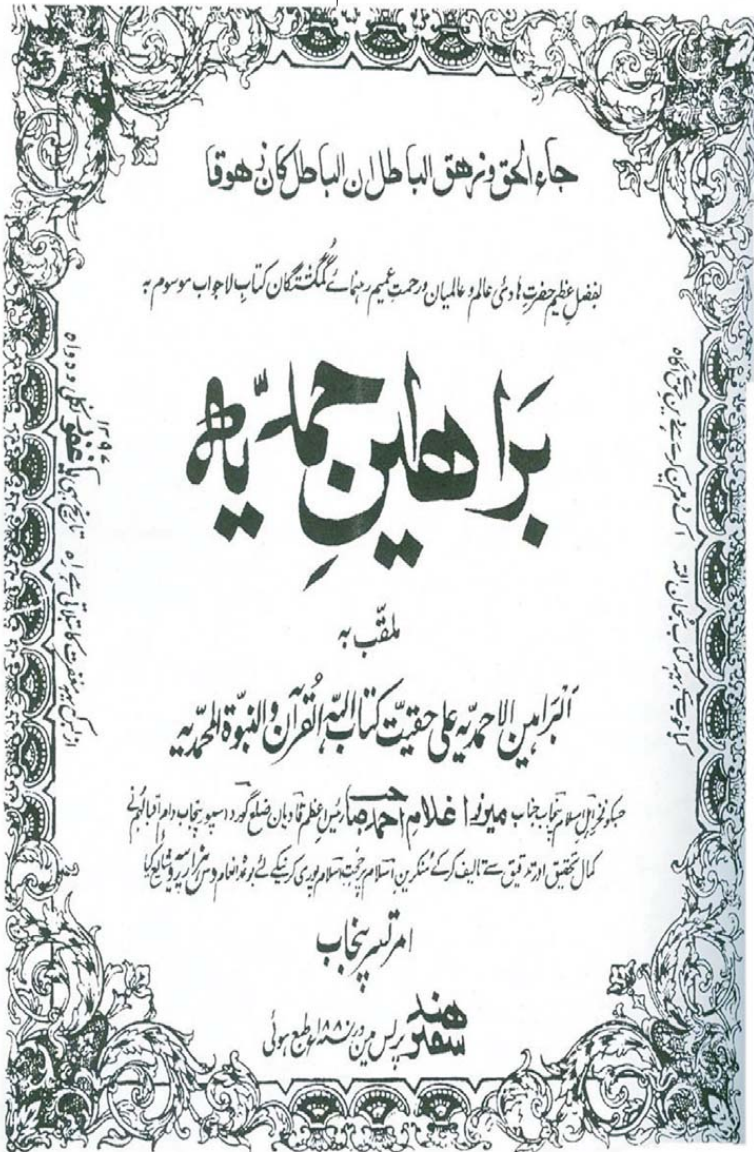 جاء الحق وزهق الباطل ان الباطل كان زهوقا
بفضلِ عظیم حضرت ہادیٔ عالم و عالمیان و رحمتِ عمیم رہنمائے گُمگشتگان کتابِ لاجواب موسوم بہ
بَرَاهِینِ احمدیّه
ملقّب بہ
اَلبراہین الاحمدیّہ علی حقیّت کتاب اللّٰہ القُرآن والنبوّة المحمّدیہ
جسکو فخر اہل اسلام پنجاب جناب میرزا غلام احمد صاحب رئیس اعظم قادیان ضلع گورداسپور پنجاب دام اقبالہم نے
کمال تحقیق اور تدقیق سے تالیف کرکے منکرین اسلام پر حجت اسلام پوری کرنیکے لئے بوعدہ انعام دس ہزار روپیہ شایع کیا
امرتسر پنجاب
سفیر ہند پریس مین در ۱۸۸۰ طبع ہوئی
یا غفور
۱۲۹۷